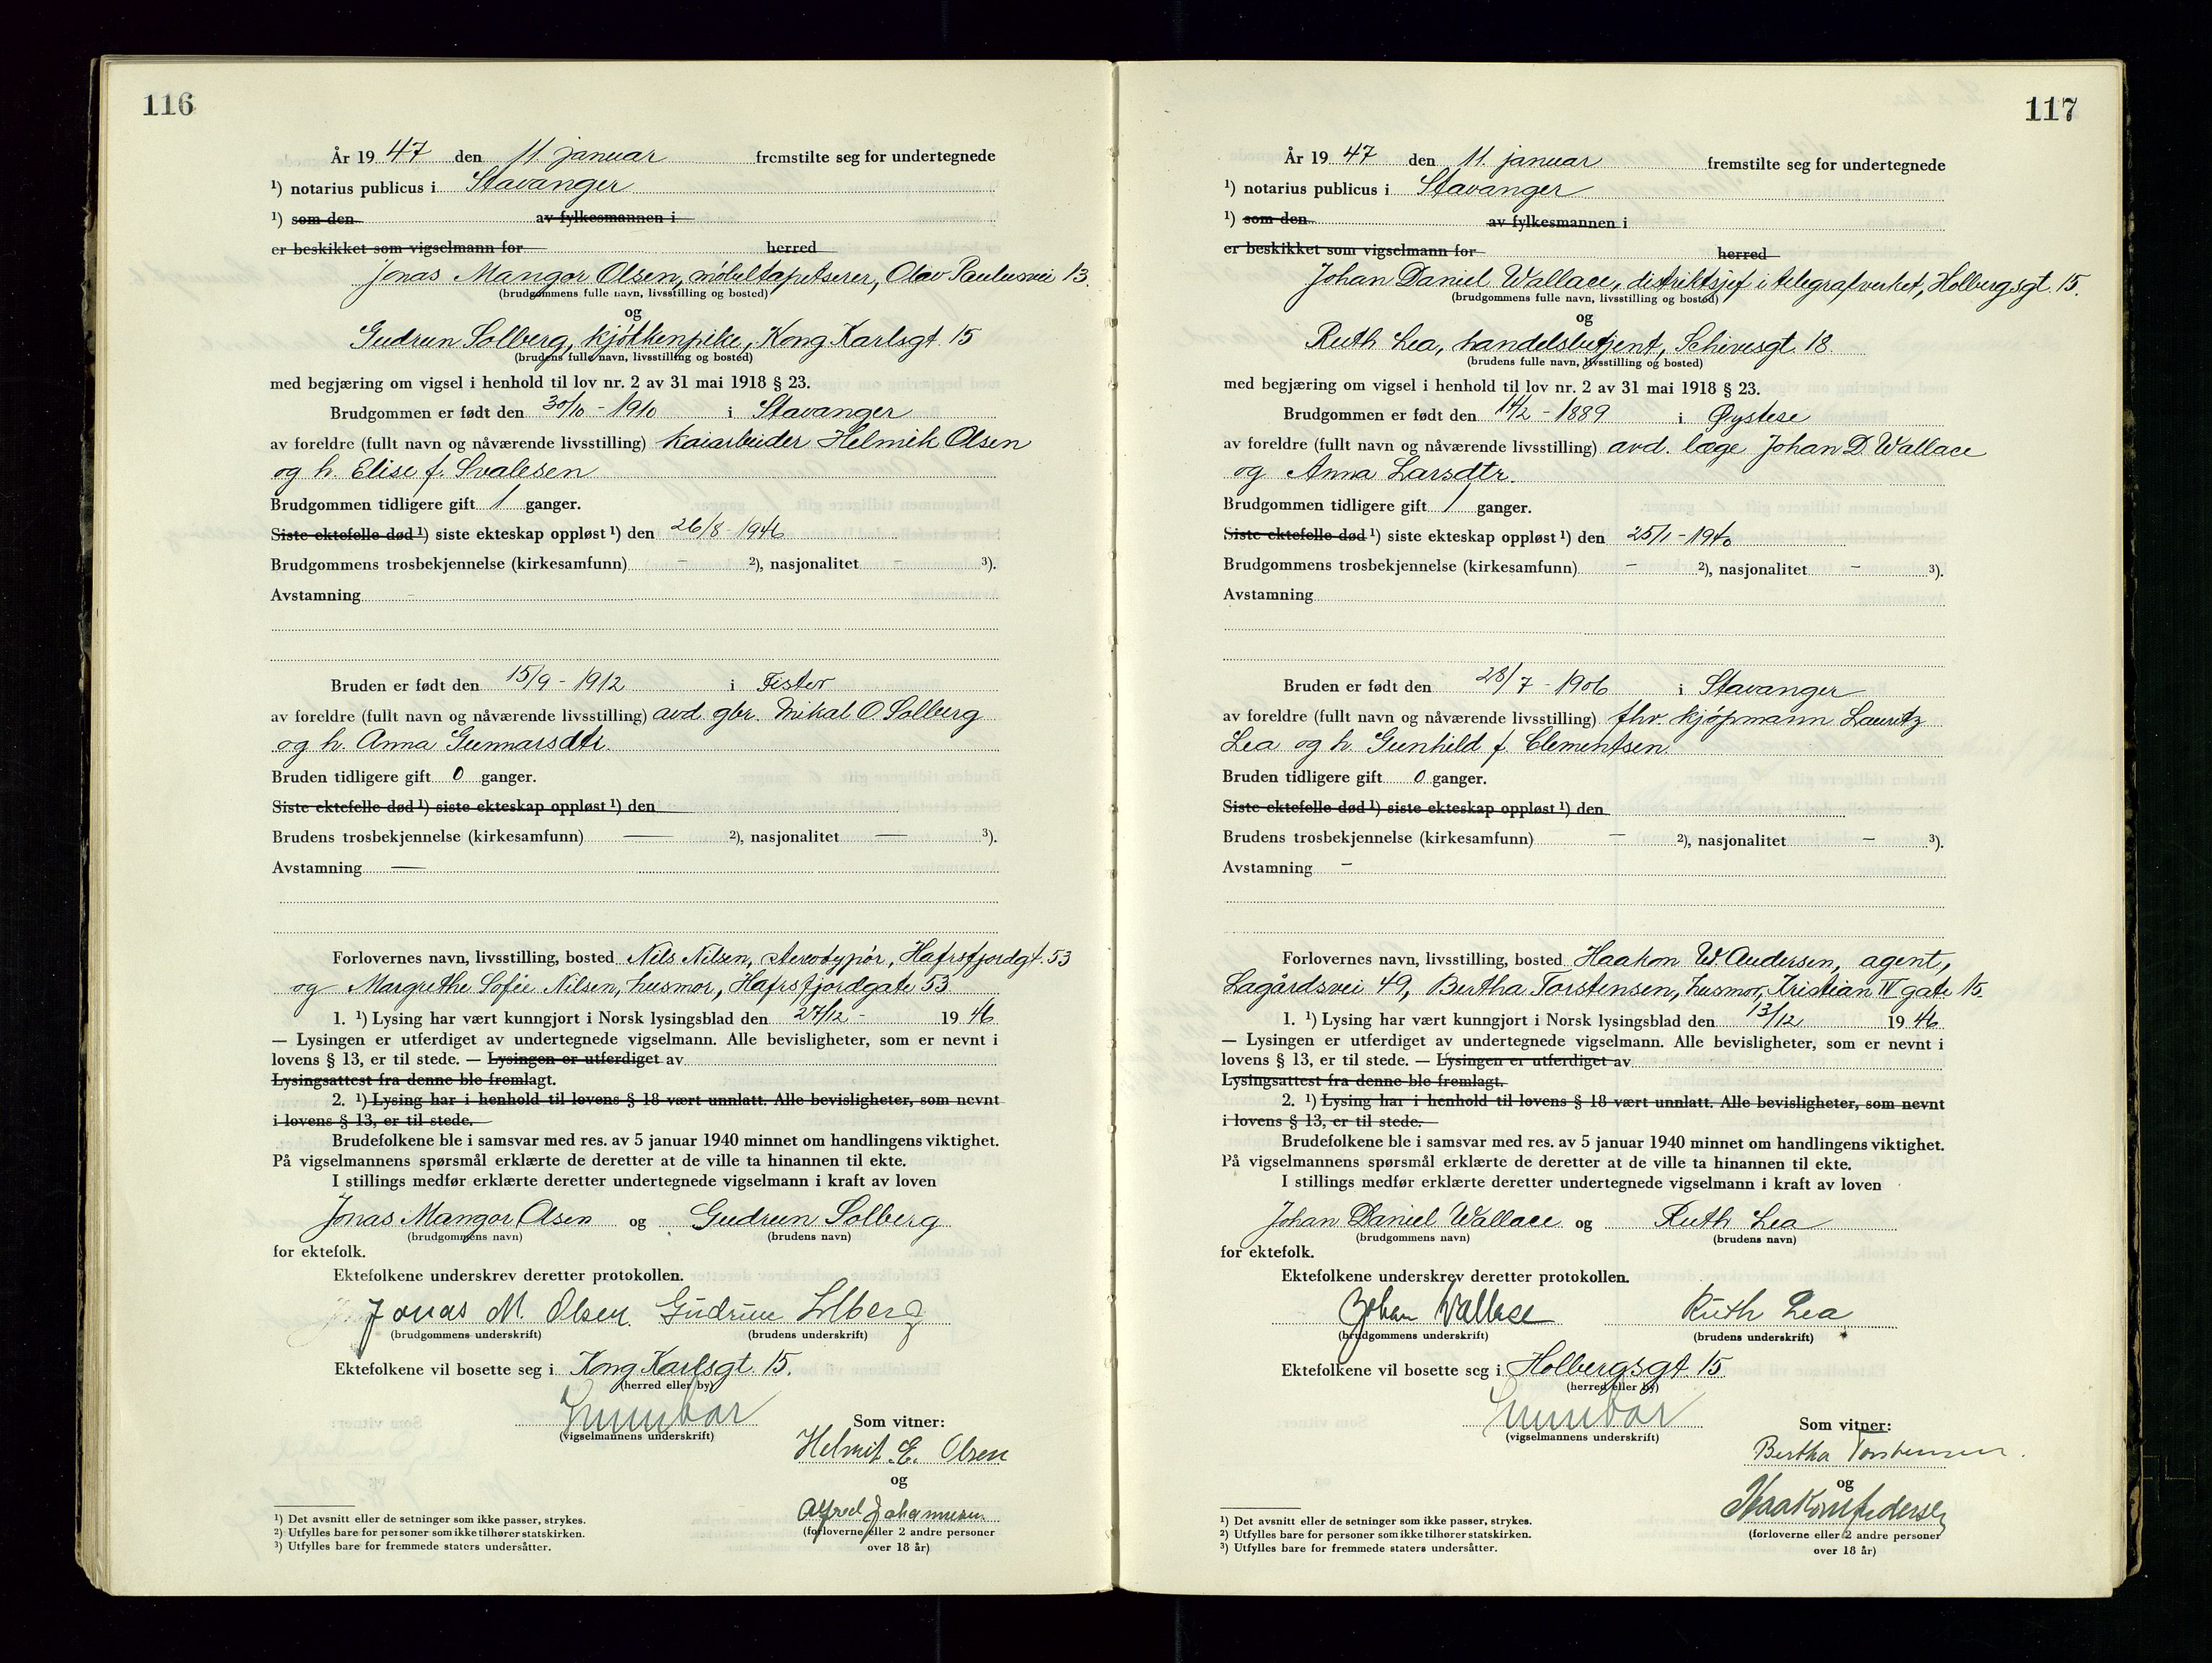 116
År 1947 den 11 januar fremstilte seg for undertegnede
¹) notarius publicus i Stavanger
¹) som den av fylkesmannen i
er beskikket som vigselmann for herred
Jonas Mangor Olsen, møbeltapetserer, Olav Paulusvei 13.
(brudgommens fulle navn, livsstilling og bosted)
og
Gudrun Solberg, kjøkkenpike, Kong Karlsgt. 15
(brudens fulle navn, livsstilling og bosted)
med begjæring om vigsel i henhold til lov nr. 2 av 31 mai 1918 § 23.
Brudgommen er født den 30/10 - 1910 i Stavanger
av foreldre (fullt navn og nåværende livsstilling) kaiarbeider Helmik Olsen
og h. Elise f. Svalesen
Brudgommen tidligere gift 1 ganger.
Siste ektefelle død ¹) siste ekteskap oppløst ¹) den 26/8 - 1946
Brudgommens trosbekjennelse (kirkesamfunn) - ²), nasjonalitet - ³).
Avstamning -
Bruden er født den 15/9 - 1912 i Fister
av foreldre (fullt navn og nåværende livsstilling) avd. gbr. Mikal O. Solberg
og h. Anna Gunnarsdtr.
Bruden tidligere gift 0 ganger.
Siste ektefelle død ¹) siste ekteskap oppløst ¹) den
Brudens trosbekjennelse (kirkesamfunn) — ²), nasjonalitet — ³).
Avstamning —
Forlovernes navn, livsstilling, bosted Nils Nilsen, stereotypør, Hafrsfjordgt. 53
og Margrethe Sofie Nilsen, husmor, Hafrsfjordgate 53
1. ¹) Lysing har vært kunngjort i Norsk lysingsblad den 27/12 - 1946
— Lysingen er utferdiget av undertegnede vigselmann. Alle bevisligheter, som er nevnt i
lovens § 13, er til stede. — Lysingen er utferdiget av
Lysingsattest fra denne ble fremlagt.
2. ¹) Lysing har i henhold til lovens § 18 vært unnlatt. Alle bevisligheter, som nevnt
i lovens § 13, er til stede.
Brudefolkene ble i samsvar med res. av 5 januar 1940 minnet om handlingens viktighet.
På vigselmannens spørsmål erklærte de deretter at de ville ta hinannen til ekte.
I stillings medfør erklærte deretter undertegnede vigselmann i kraft av loven
Jonas Mangor Olsen og Gudrun Solberg
(brudgommens navn) (brudens navn)
for ektefolk.
Ektefolkene underskrev deretter protokollen.
Jonas M. Olsen. Gudrun Solberg
(brudgommens underskrift) (brudens underskrift)
Ektefolkene vil bosette seg i Kong Karlsgt. 15.
(herred eller by)
(vigselmannens underskrift)
Som vitner:
Helmik E. Olsen
og
Alfred Johannesen
(forloverne eller 2 andre personer
over 18 år)
¹) Det avsnitt eller de setninger som ikke passer, strykes.
²) Utfylles bare for personer som ikke tilhører statskirken.
³) Utfylles bare for fremmede staters undersåtter.
117
År 1947 den 11. januar fremstilte seg for undertegnede
¹) notarius publicus i Stavanger
¹) som den av fylkesmannen i
er beskikket som vigselmann for herred
Johan Daniel Wallace, distriktsjef i telegrafverket, Holbergsgt. 15.
(brudgommens fulle navn, livsstilling og bosted)
og
Ruth Lea, handelsbetjent, Schivesgt. 18
(brudens fulle navn, livsstilling og bosted)
med begjæring om vigsel i henhold til lov nr. 2 av 31 mai 1918 § 23.
Brudgommen er født den 14/2 - 1889 i Øystese
av foreldre (fullt navn og nåværende livsstilling) avd. læge Johan D. Wallace
og Anna Larsdtr.
Brudgommen tidligere gift 1 ganger.
Siste ektefelle død ¹) siste ekteskap oppløst ¹) den 25/1 - 1940
Brudgommens trosbekjennelse (kirkesamfunn) - ²), nasjonalitet - ³).
Avstamning
Bruden er født den 28/7 - 1906 i Stavanger
av foreldre (fullt navn og nåværende livsstilling) fhv. kjøpmann Lauritz
Lea og h. Gunhild f. Clementsen
Bruden tidligere gift 0 ganger.
Siste ektefelle død ¹) siste ekteskap oppløst ¹) den
Brudens trosbekjennelse (kirkesamfunn) - ²), nasjonalitet - ³).
Avstamning -
Forlovernes navn, livsstilling, bosted Haakon W. Andersen, agent,
Lagårdsvei 49, Bertha Torstensen, husmor, Kristian IV gate 15.
1. ¹) Lysing har vært kunngjort i Norsk lysingsblad den 13/12 1946
— Lysingen er utferdiget av undertegnede vigselmann. Alle bevisligheter, som er nevnt i
lovens § 13, er til stede. — Lysingen er utferdiget av
Lysingsattest fra denne ble fremlagt.
2. ¹) Lysing har i henhold til lovens § 18 vært unnlatt. Alle bevisligheter, som nevnt
i lovens § 13, er til stede.
Brudefolkene ble i samsvar med res. av 5 januar 1940 minnet om handlingens viktighet.
På vigselmannens spørsmål erklærte de deretter at de ville ta hinannen til ekte.
I stillings medfør erklærte deretter undertegnede vigselmann i kraft av loven
Johan Daniel Wallace og Ruth Lea
(brudgommens navn) (brudens navn)
for ektefolk.
Ektefolkene underskrev deretter protokollen.
Johan Wallace Ruth Lea
(brudgommens underskrift) (brudens underskrift)
Ektefolkene vil bosette seg i Holbergsgt. 15
(herred eller by)
(vigselmannens underskrift)
Som vitner:
Bertha Torstensen.
og
Haakon Andersen
(forloverne eller 2 andre personer
over 18 år)
¹) Det avsnitt eller de setninger som ikke passer, strykes.
²) Utfylles bare for personer som ikke tilhører statskirken.
³) Utfylles bare for fremmede staters undersåtter.